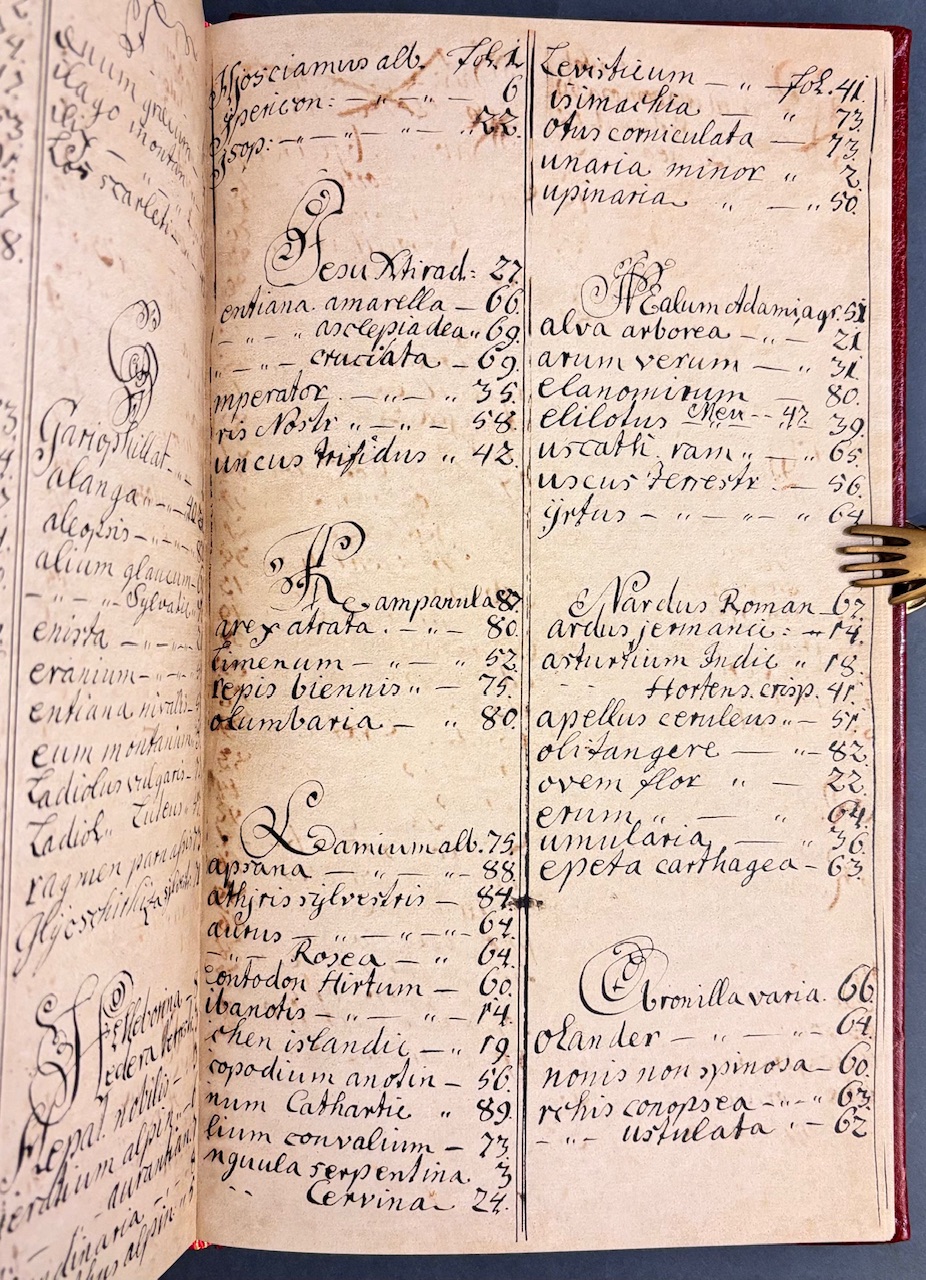 Gariophillat
alanga
aleopsis
alium glaucum
Sylvatic
enista
eranium
entiana nivalis
eum montanum
Ladiolus vulgaris
Ladiol„ Luteus
Helleborina
edera terrest
Hepat. nobilis
alpin
Hyosciamus alb. fol. 1
Ypericon: — „ — „ — 6
Ysop: — „ — „ — „ — 22
Jesu Xti rad: 27.
entiana amarella — 66.
— „ — „ asclepiadea „ 69.
„ — „ — cruciata — 69.
mperator. — „ — „ 35.
ris Nostr „ — „ — 58.
uncus trifidus „ 42.
Campanula 87
arex atrata. — „ — 80.
timenum — „ — „ 52.
repis biennis „ — 75.
olumbaria — „ 80.
Lamium alb. 75
apsana — „ — „ — 88.
athyris sylvestris — 84.
aurus — „ — „ — „ — 64.
— „ — Rosea — „ 64.
eontodon Hirtum — 60.
ibanotis — „ — „ — 14.
ichen islandic — „ 19
copodium anotin — 56.
num Cathartic „ 89.
lium convalium — 73.
nguula serpentina 3
Cervina 24.
Levisticum — „ — fol. 41.
isimachia — „ 73.
otus corniculata — 73.
unaria minor „ 2.
upinaria „ — „ 50.
Malum Adami, agr. 51
alva arborea — „ — 21
arum verum — „ 31
elanomirum — 80.
elilotus Meu -- 42 39.
uscathi ram „ — „ 65.
uscus terrestr. — 56.
ÿrtus — „ — „ — „ 64
Nardus Roman — 67.
ardus jermanic: — 14.
asturtium Indic „ 18.
Hortens. crisp. 41.
apellus ceruleus „ — 51.
olitangere — „ — 82.
ovem flor „ — 22.
erum „ — „ 64.
umularia „ — „ 36.
epeta carthagea — 63.
Oronilla varia. 66.
olander — „ — „ — 64.
nonis non spinosa — 60.
rchis conopsea — „ — „ 63.
— „ — ustulata „ — 62